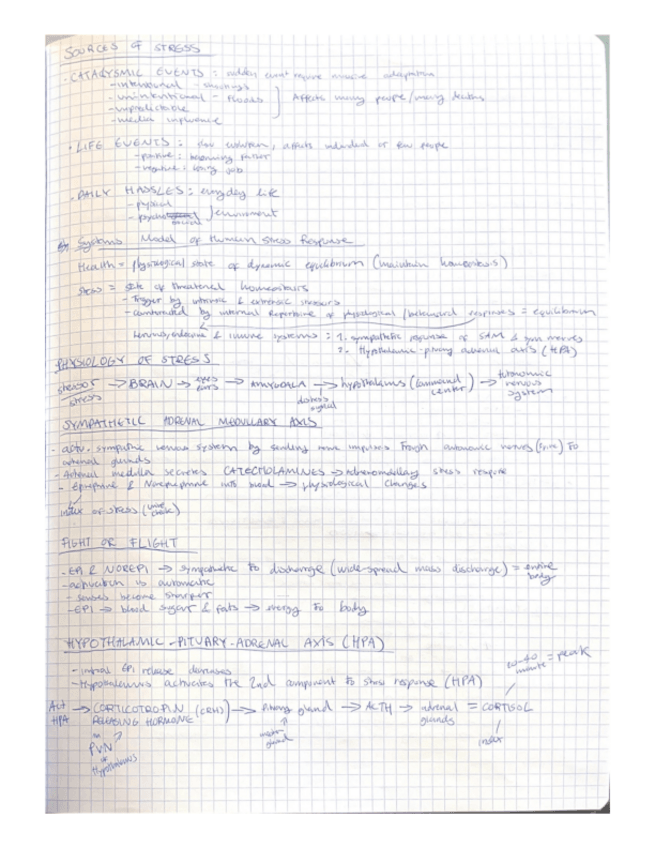 SOURCES OF STRESS
- CATACYSMIC EVENTS : sudden event require massive adaptation
- intentional - shootings
- unintentional - floods } Affects many people/many deaths
- unpredictable
- media influence
• LIFE EVENTS : slow evolution, affects individual or few people
- positive : becoming parent
- negative : losing job
- DAILY HASSLES : everyday life
- physical
- psychosocial } environment
Systems Model of Human Stress Response
Health = physiological state of dynamic equilibrium (maintain homeostasis)
Stress = state of threatened homeostasis
- Trigger by intrinsic & extrinsic stressors
- Counteracted by internal Repertoire of physiological / behavioural responses = equilibrium
Nervous, endocrine & immune systems : 1. sympathetic response of SAM & sym nerves
2. Hypothalamic-pituitary adrenal axis (HPA)
PHYSIOLOGY OF STRESS
stressor → BRAIN → eyes ears → AMYGDALA → hypothalamus (command center) → autonomic nervous system
stress
distress signal
SYMPATHETIC ADRENAL MEDULLARY AXIS
- activ. sympathic nervous system by sending nerve impulses through autonomic nerves to
adrenal glands
- Adrenal medulla secretes CATECHOLAMINES → adrenomedullary stress response
- Epinephrine & Norepinephrine into blood → physiological changes
index of stress (urine)
FIGHT OR FLIGHT
- EPI & NOREPI → sympathetic to discharge (wide-spread mass discharge) = entire body
- activation is automatic
- senses become sharper
- EPI → blood sugar & fats → energy to body
HYPOTHALAMIC - PITUARY - ADRENAL AXIS (HPA)
- initial EPI release decreases
- Hypothalamus activates the 2nd component to stress response (HPA)
20-40 minute = peak
Act HPA → CORTICOTROPIN (CRH) → Pituitary gland → ACTH → adrenal glands = CORTISOL
RELEASING HORMONE
in PVN of Hypothalamus
master gland
index